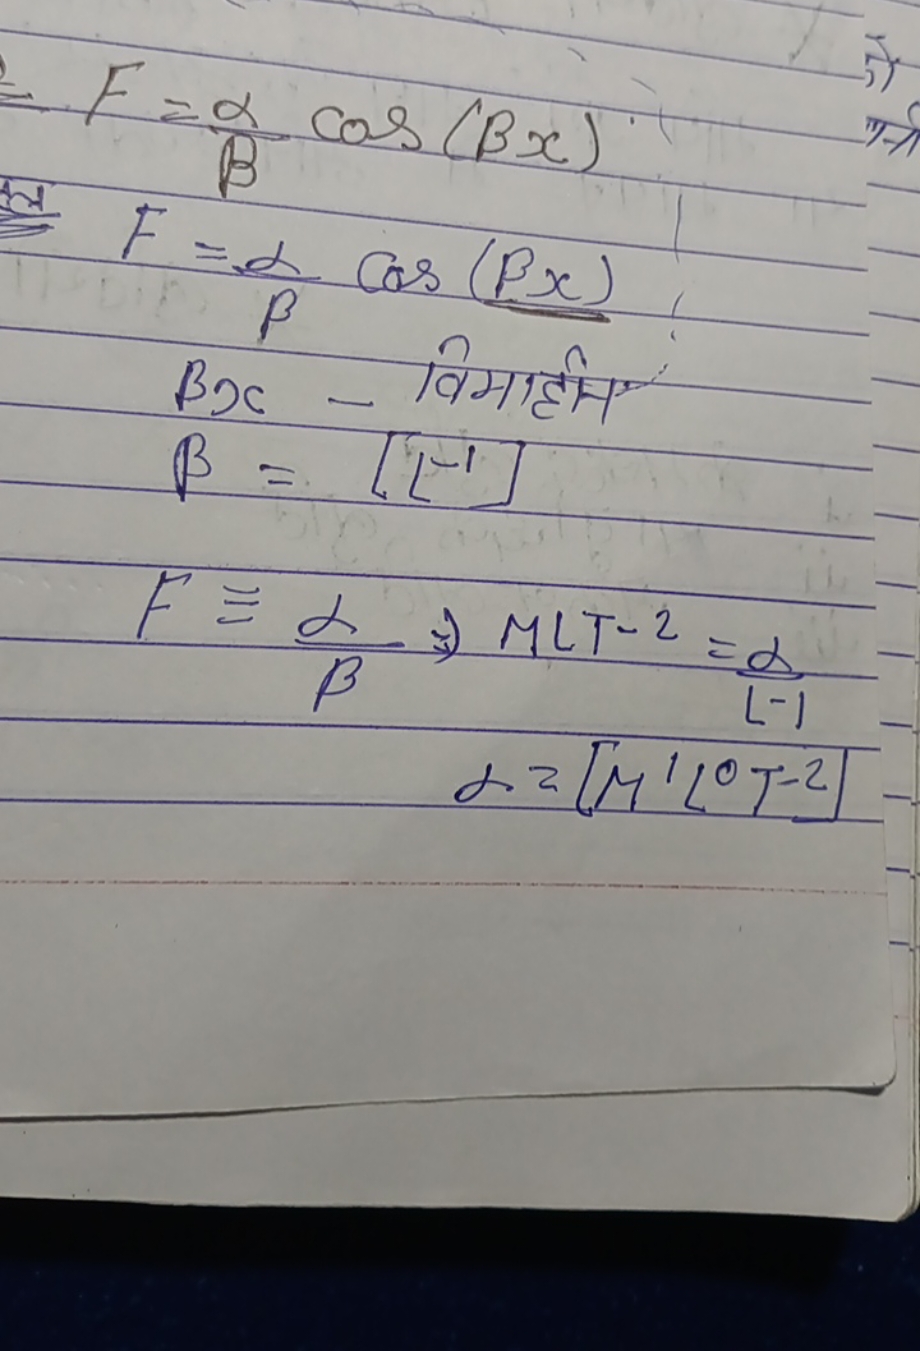 F = α/β cos (βx)
F = α/β cos (βx)
βx - विमाहीन
β = [L-1]
F ≡ α/β ⇒ MLT-2 = α/L-1
α = [M1L0T-2]